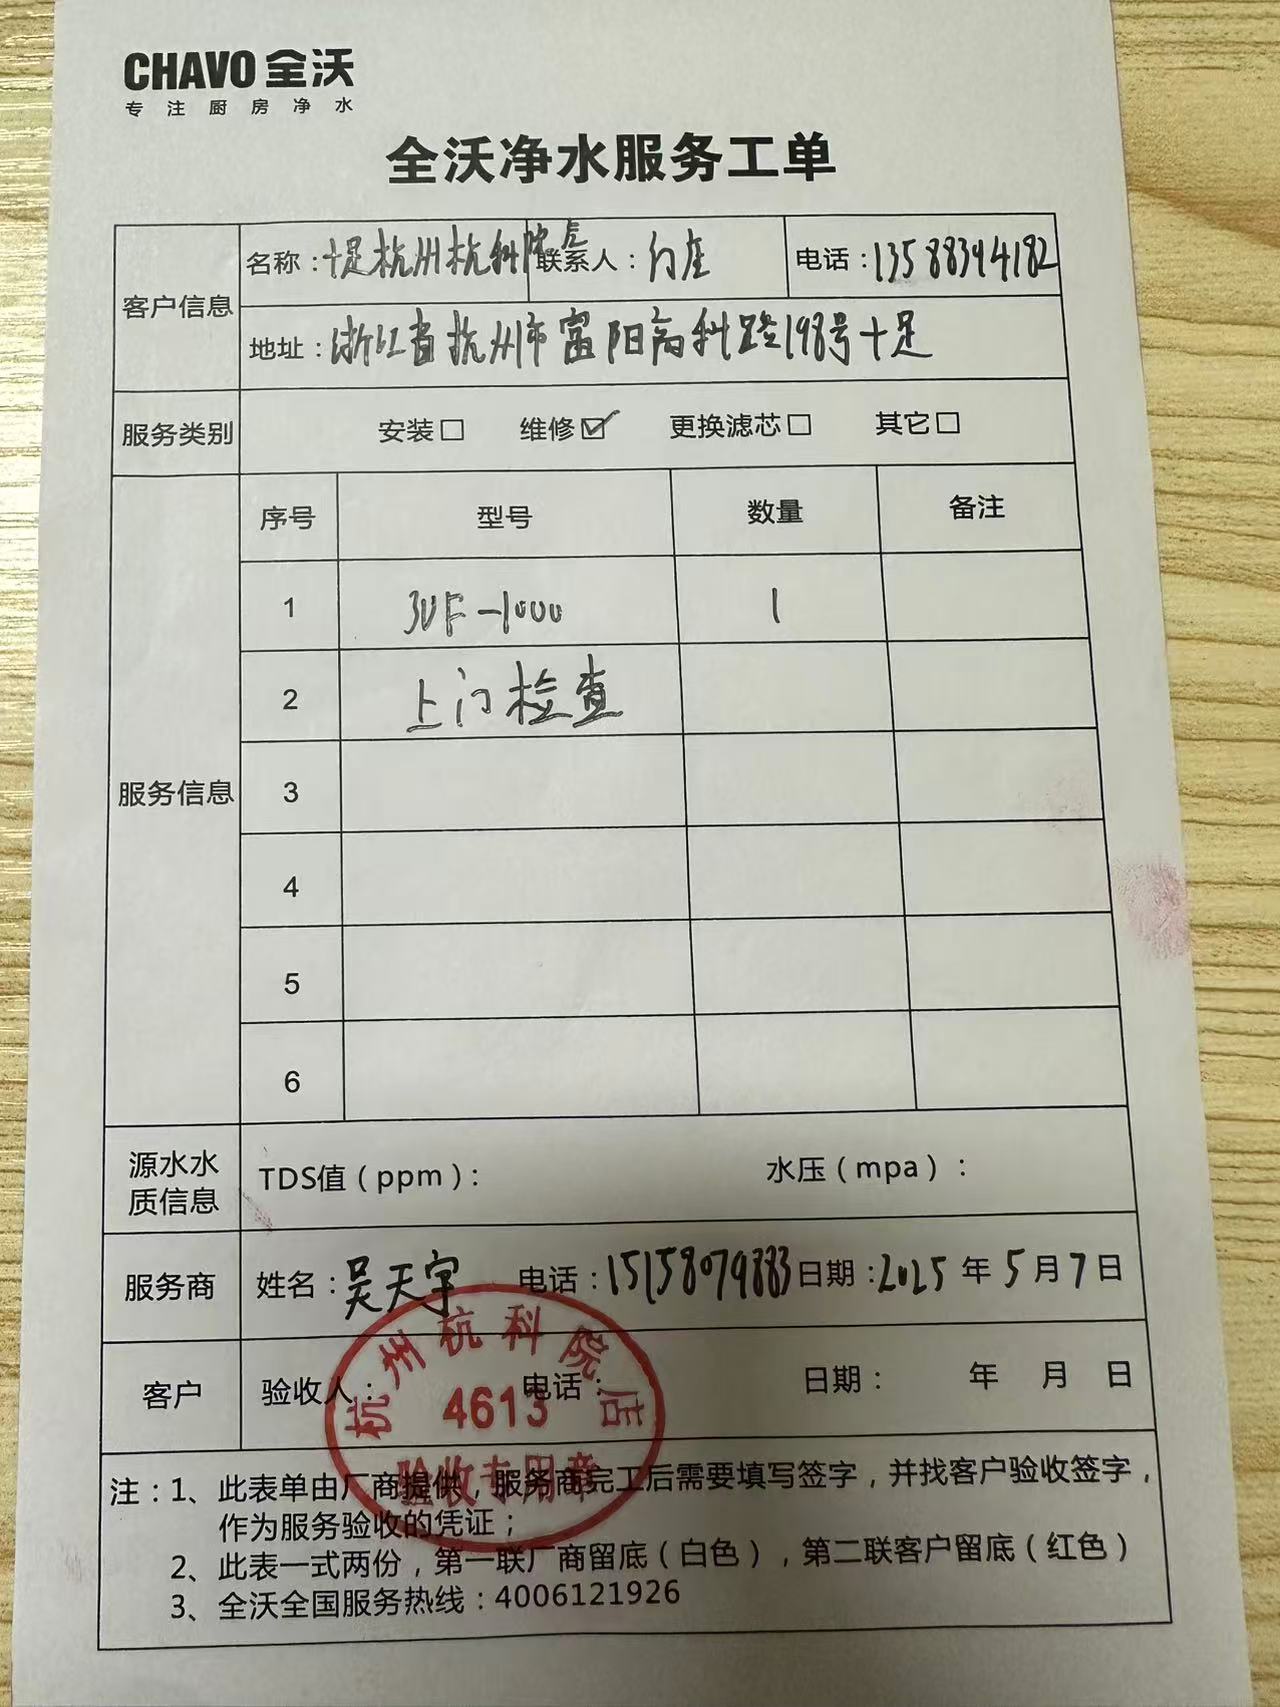 CHAVO 全沃
专注厨房净水
全沃净水服务工单
客户信息
名称：十足杭州杭科院店 联系人： 电话：13588394182
地址：浙江省杭州市富阳高科路198号十足
服务类别 安装□ 维修☑ 更换滤芯□ 其它□
服务信息
序号 型号 数量 备注
1 3UF-1000 1
2 上门检查
3
4
5
6
源水水质信息 TDS值（ppm）： 水压（mpa）：
服务商 姓名：吴天宇 电话：15158079883 日期：2025年5月7日
客户 验收人： 电话： 日期： 年 月 日
杭州杭科院店
4613
验收专用章
注：1、此表单由厂商提供，服务商完工后需要填写签字，并找客户验收签字，
作为服务验收的凭证；
2、此表一式两份，第一联厂商留底（白色），第二联客户留底（红色）
3、全沃全国服务热线：4006121926